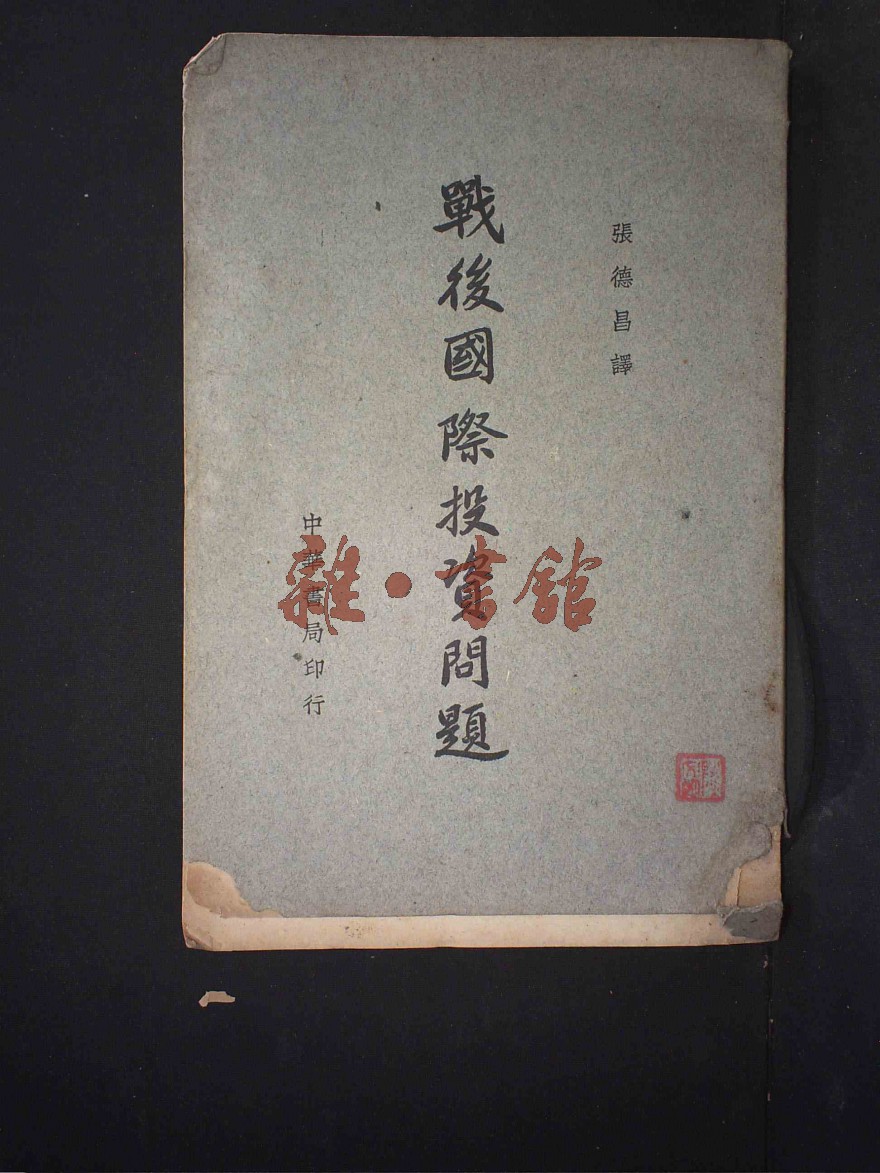 張德昌譯
戰後國際投資問題
中華書局印行
雜·書館